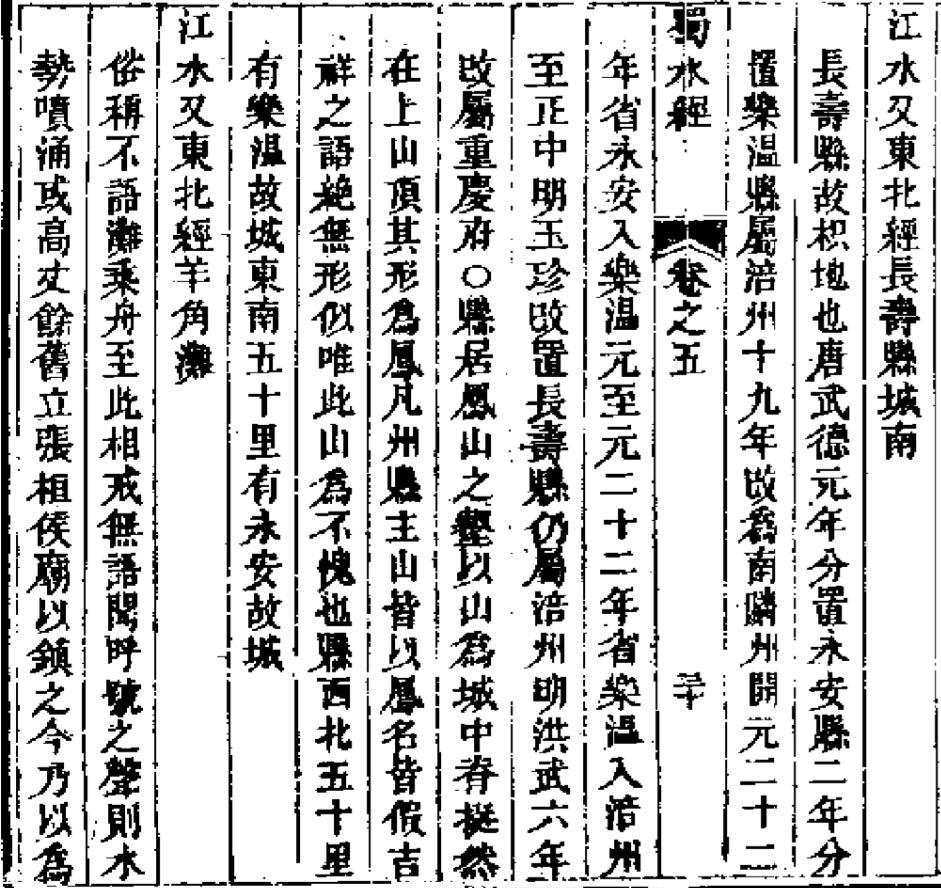 江水又東北經長壽縣城南
長壽縣故枳地也唐武德元年分置永安縣二年分
置樂溫縣屬涪州十九年改爲南隣州開元二十二
蜀水經 卷之五 三十
年省永安入樂溫元至元二十二年省樂溫入涪州
至正中明玉珍改置長壽縣仍屬涪州明洪武六年
改屬重慶府○縣居鳳山之以山爲城中脊挺然
在上山頂其形爲鳳凡州縣主山皆以鳳名皆假吉
祥之語絶無形似唯此山爲不愧也縣西北五十里
有樂溫故城東南五十里有永安故城
江水又東北經羊角灘
俗稱不語灘乘舟至此相戒無語聞呼號之聲則水
勢噴涌或高丈餘舊立張桓侯廟以鎮之今乃以爲